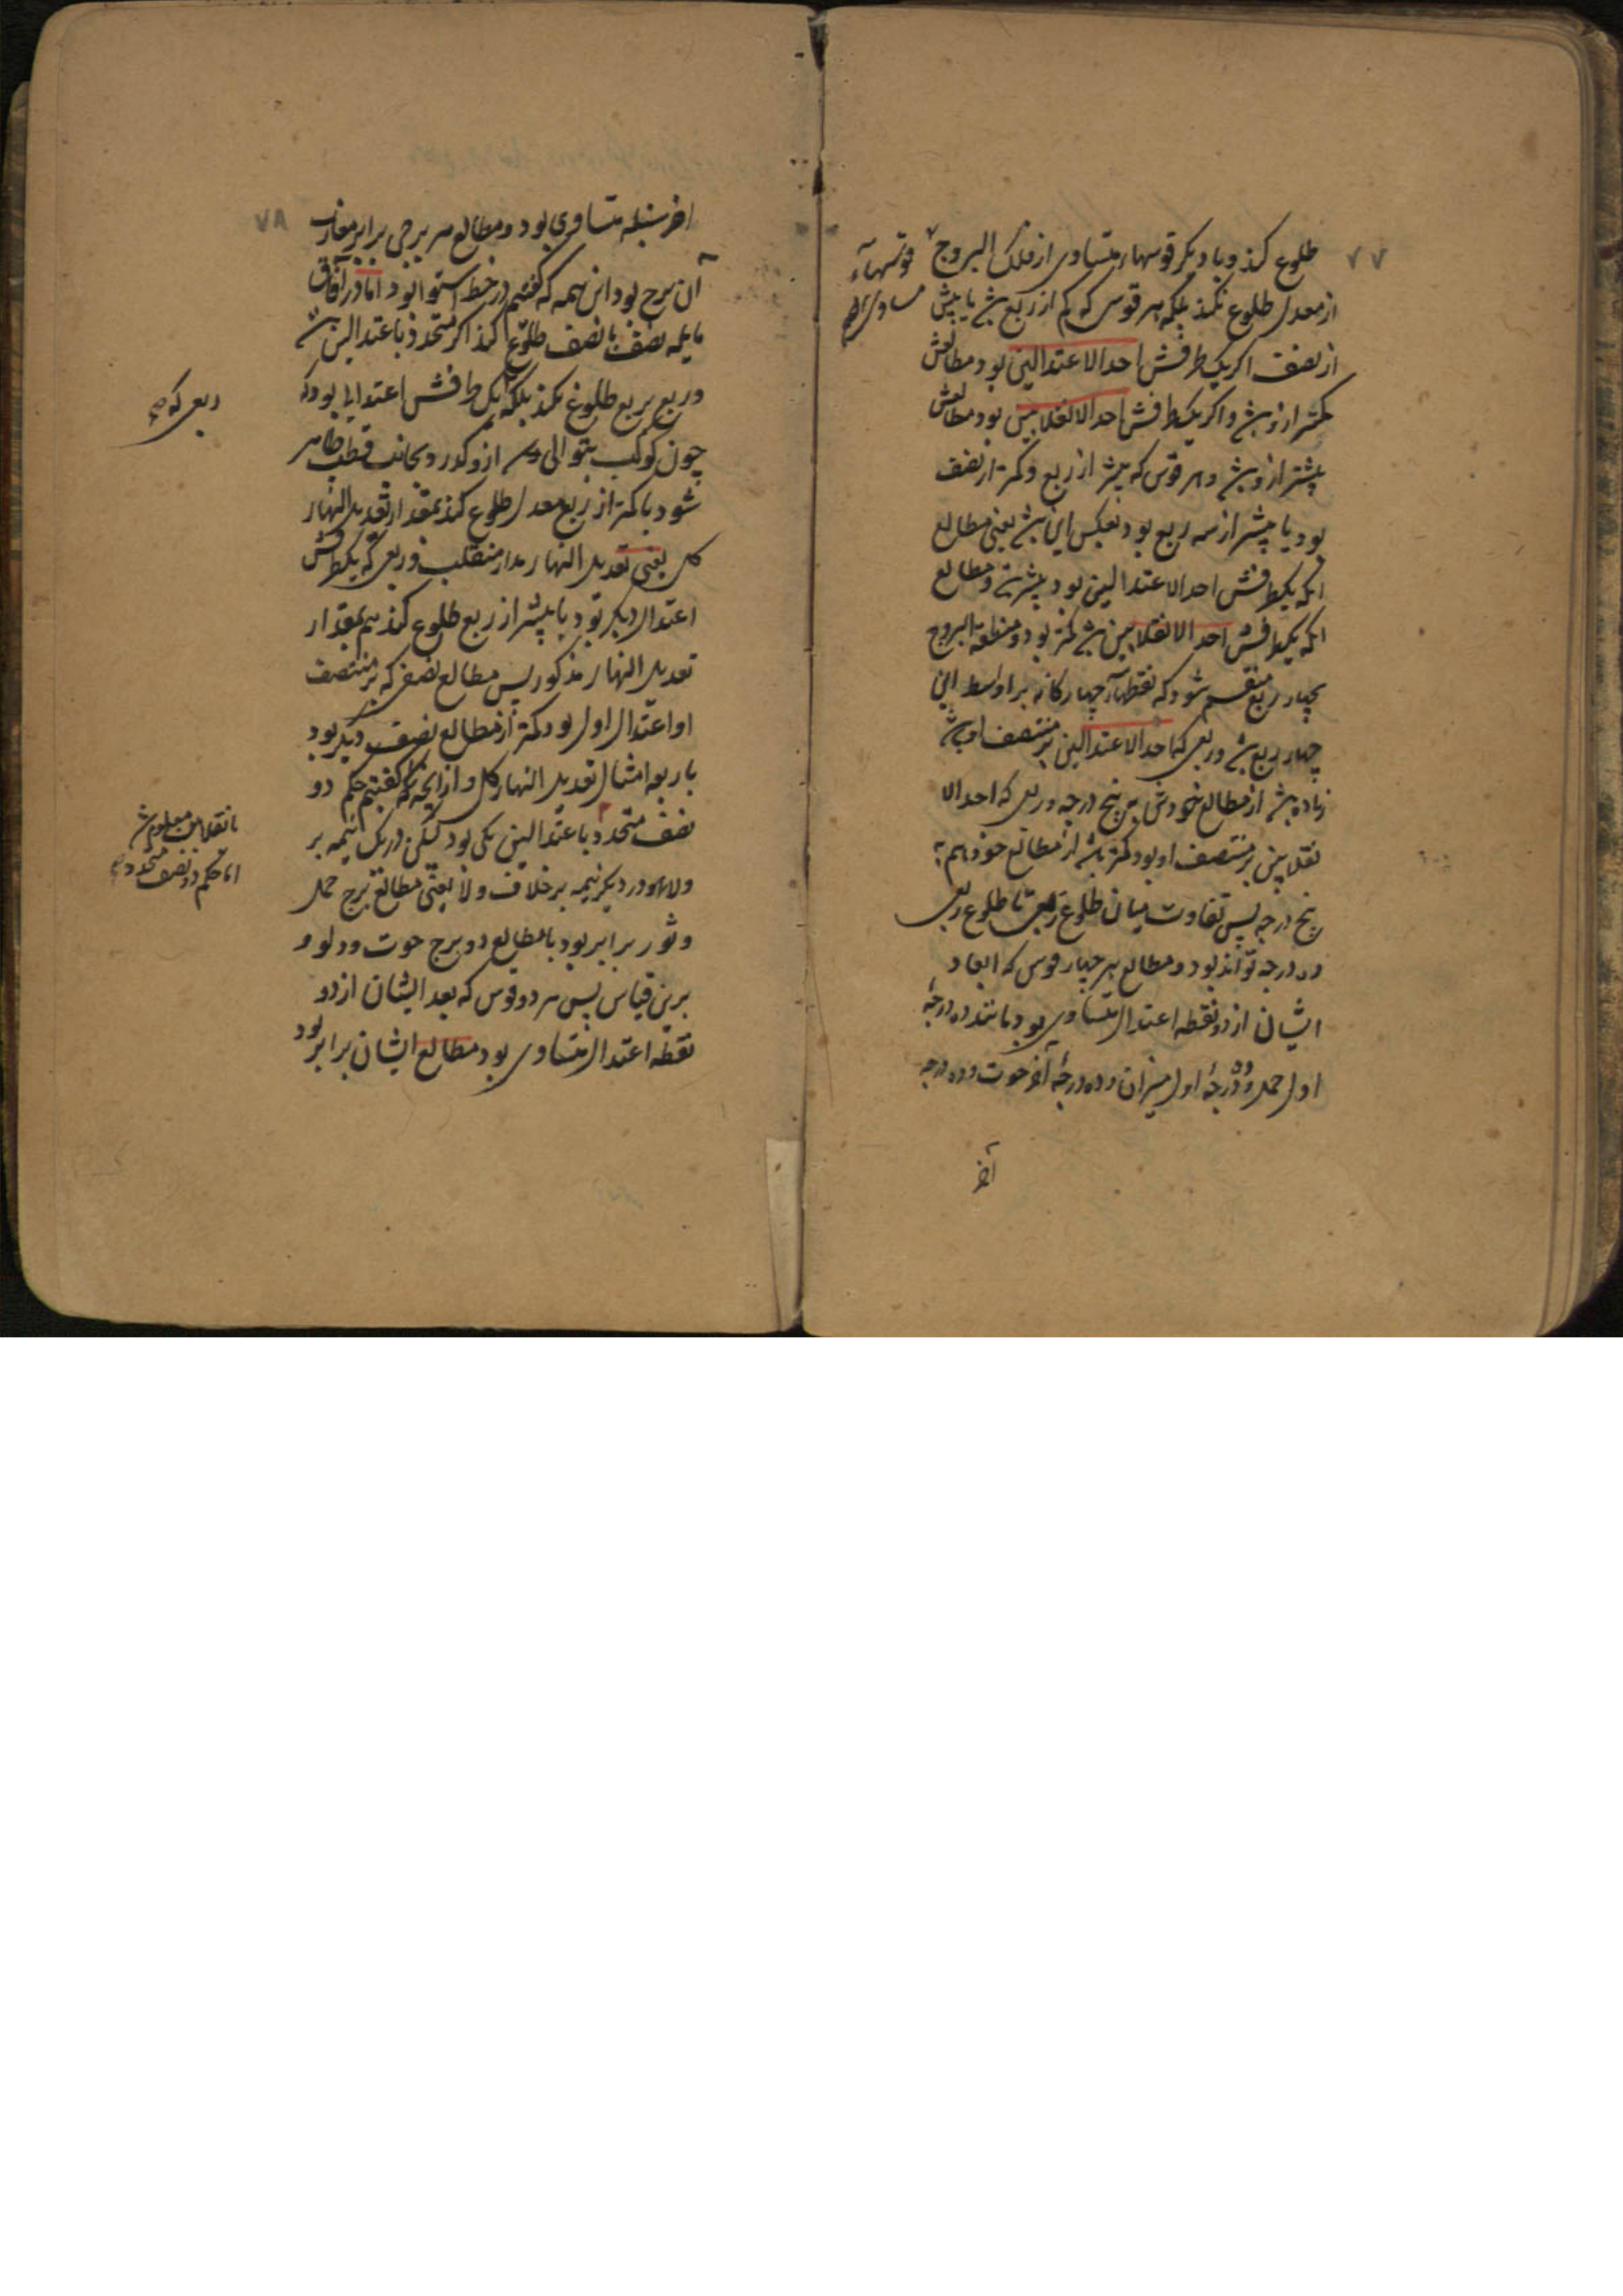 ۷۷
طلوع کند و با دیکر قوسهاء متساوی از فلک البروج قوسهاء
مساوی
از معدل طلوع نکند بلکه هر قوس که کم از ربع باشد یا بیش
از نصف اکر یک طرفش احد الاعتدالین بود مطالعش
کمتر ازو باشد و اکر یک طرفش احد الانقلابین بود مطالعش
بیشتر ازو باشد و هر قوس که بیشتر از ربع و کمتر از نصف
بود یا بیشتر از سه ربع بود بعکس این باشد یعنی مطالع
انکه یکطرفش احد الاعتدالین بود بیشتر و مطالع
انکه یکطرفش احد الانقلابین باشد کمتر بود و منطقة البروج
بچهار ربع منقسم شود که نقطهاء چهارکانه بر اواسط این
چهار ربع باشد و ربعی که احد الاعتدالین بر منتصف او باشد
زیاده باشد از مطالع خودش به پنج درجه و ربعی که احد الا
نقلابین بر منتصف او بود کمتر باشد از مطالع خود هم به
پنج درجه پس تفاوت میان طلوع ربعی تا طلوع ربعی
ده درجه تواند بود و مطالع هر چهار قوس که ابعاد
ایشان از دو نقطه اعتدال متساوی بود مانند ده درجهٔ
اول حمل و ده درجهٔ اول میزان و ده درجهٔ آخر حوت و ده درجه
آخر
۷۸
اخر سنبله متساوی بود و مطالع هر برجی برابر مغارب
آن برج بود این همه که کفتیم در خط استوا بود اما در آفاق
مایله نصف با نصف طلوع کند اکر متحدد باعتدالین باشد
و ربع بربع طلوع نکند بلکه یک طرفش اعتدالی بود که
ربعی که
چون کوکب بتوالی ازو کذرد بجانب قطب ظاهر
شود با کمتر از ربع معدل طلوع کند بمقدار تعدیل النهار
کل یعنی تعدیل النهار مدار منقلب و ربعی که یکطرفش
اعتدال دیکر بود با بیشتر از ربع طلوع کند هم بمقدار
تعدیل النهار مذکور پس مطالع نصفی که بر منتصف
او اعتدال اول بود کمتر از مطالع نصف دیکر بود
باربعه امثال تعدیل النهار کل و از آنچه کفتیم حکم دو
بانقلابین معلوم شد
اما حکم دو نصف متحدد
نصف متحدد باعتدالین یکی بود لیکن در یک نیمه بر
ولا بود و در دیکر نیمه بر خلاف ولا یعنی مطالع برج حمل
و ثور برابر بود با مطالع دو برج حوت و دلو و
برین قیاس پس هر دو قوس که بعد ایشان از دو
نقطه اعتدال متساوی بود مطالع ایشان برابر بود